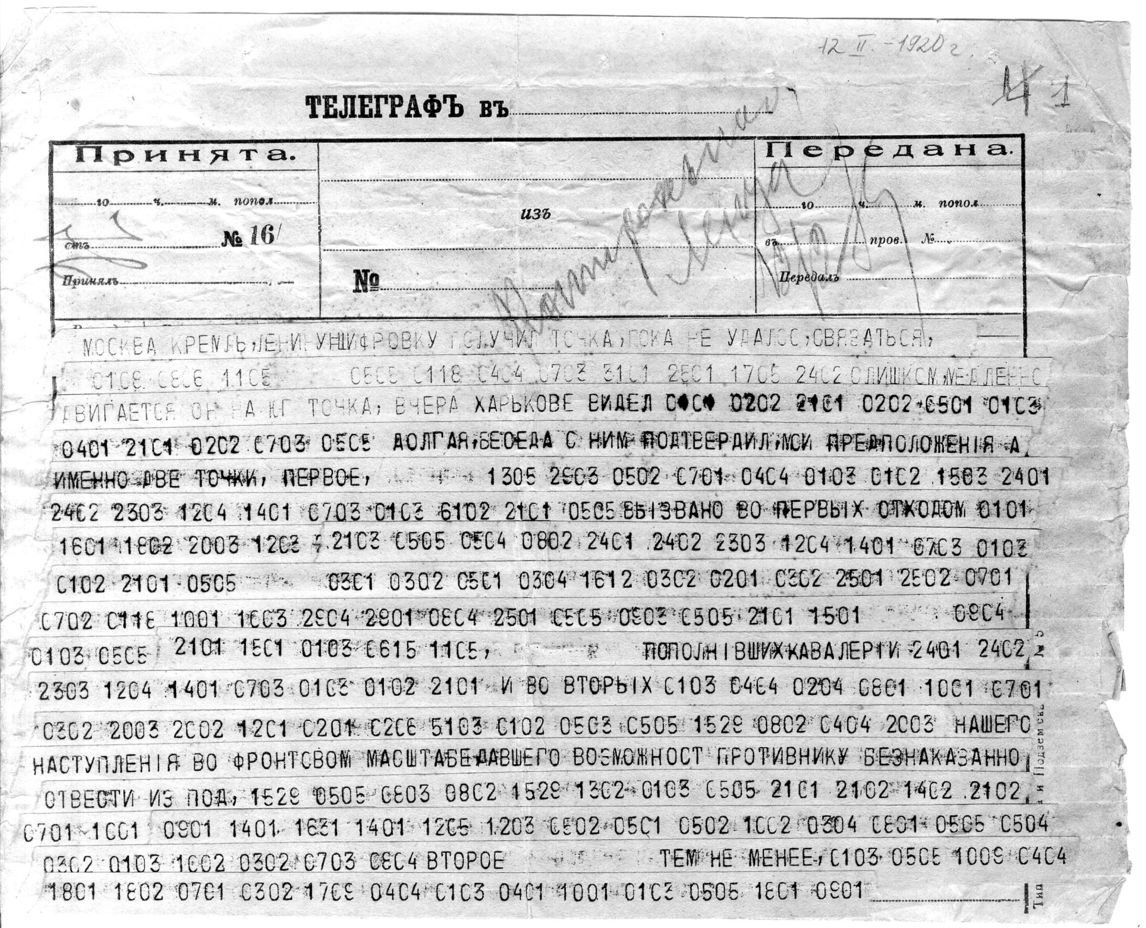 12 II. -1920 г.
1
ТЕЛЕГРАФЪ въ
Принята.
Передана.
го ч. м. попол.
изъ
го ч. м. попол.
№ 16/
въ пров. №
Принялъ
№
Передалъ
МОСКВА КРЕМЛЬ, ЛЕНИНУ ШИФРОВКУ ПОЛУЧИЛ ТОЧКА, ПОКА НЕ УДАЛОС, СВЯЗАТЬСЯ,
0108 0806 1105 0505 0118 0404 0703 3101 2801 1705 2402 СЛИШКОМ, МЕДЛЕННО
ДВИГАЕТСЯ ОН НА ЮГ ТОЧКА, ВЧЕРА ХАРЬКОВЕ ВИДЕЛ 0202 2101 0202 0501 0103
0401 2101 0202 0703 0505 ДОЛГАЯ, БЕСЕДА С НИМ ПОДТВЕРДИЛ, МОИ ПРЕДПОЛОЖЕНІЯ А
ИМЕННО ДВЕ ТОЧКИ, ПЕРВОЕ, 1305 2903 0502 0701 0404 0103 0102 1503 2401
2402 2303 1204 1401 0703 0103 6102 2101 0505 ВЫЗВАНО ВО ПЕРВЫХ ОТХОДОМ 0101
1601 1802 2003 1203 2103 0505 0504 0802 2401 2402 2303 1204 1401 0703 0103
0102 2101 0505 0301 0302 0501 0304 1612 0302 0201 0302 2501 2502 0701
0702 0118 1001 1003 2904 2901 0804 2501 0505 0903 0505 2101 1501 0904
0103 0505 2101 1501 0103 0615 1105, ПОПОЛНІВШИХ КАВАЛЕРІИ 2401 2402
2303 1204 1401 0703 0103 0102 2101 И ВО ВТОРЫХ 0103 0404 0204 0801 1001 0701
0302 2003 2002 1201 0201 0206 5103 0102 0503 0505 1529 0802 0404 2003 НАШЕГО
НАСТУПЛЕНІЯ ВО ФРОНТОВОМ МАСШТАБЕ ДАВШЕГО ВОЗМОЖНОСТ ПРОТИВНИКУ БЕЗНАКАЗАННО
ОТВЕСТИ ИЗ ПОД, 1529 0505 0803 0802 1529 1302 0103 0505 2101 2102 1402 2102
0701 1001 0901 1401 1631 1401 1205 1203 0802 0501 0502 1002 0304 0801 0505 0504
0302 0103 1002 0302 0703 0804 ВТОРОЕ ТЕМ НЕ МЕНЕЕ, 0103 0505 1009 0404
1801 1802 0701 0302 1709 0404 0103 0401 1001 0103 0505 1801 0901